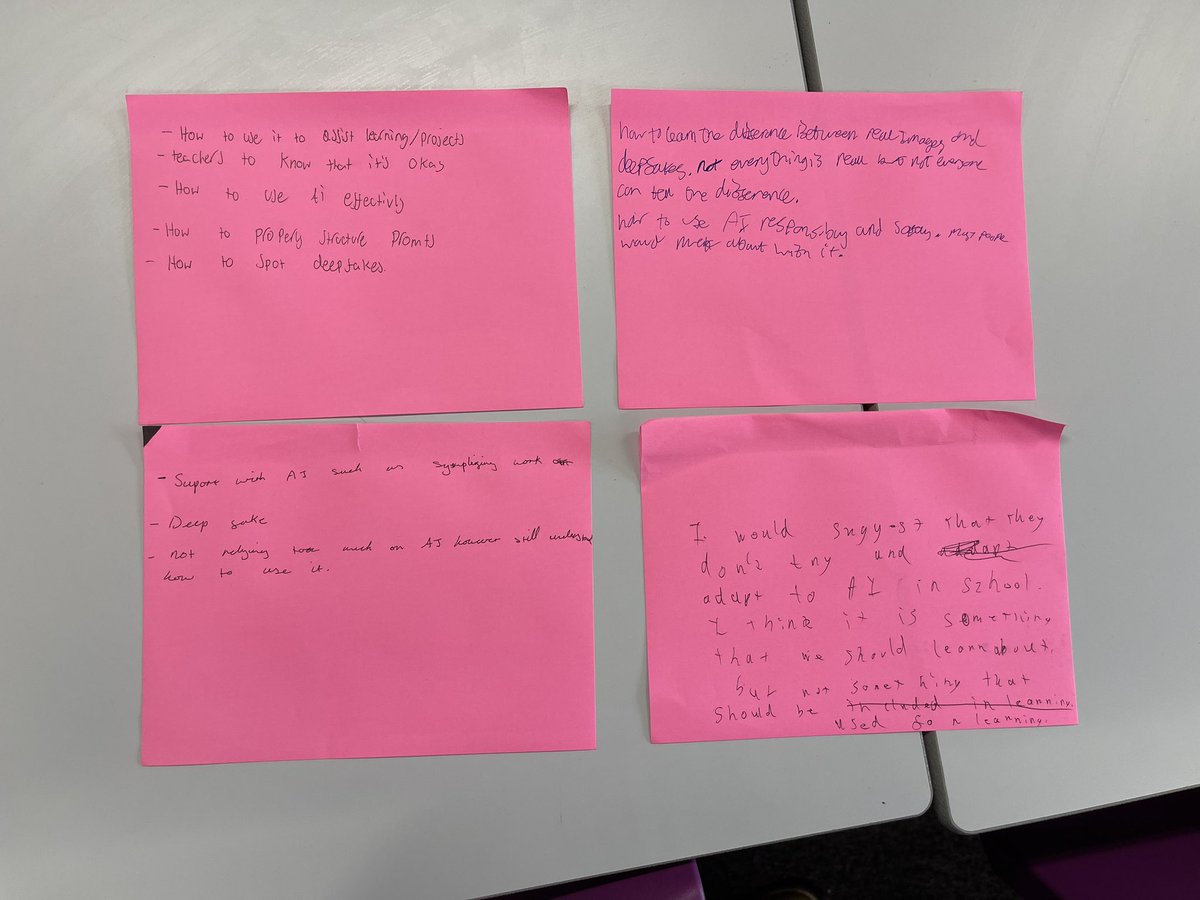 - How to use it to assist learning/projects
- teachers to know that it's okay
- How to use Ai effectivly
- How to properly structure promts
- How to spot deepfakes.
how to learn the difference Between real Images and
deepfakes. not everything is real but not everyone
can tell the difference.
how to use AI responsibuy and safay. most people
would mess about with it.
- Suport with AI such as work
- Deep fake
- not relying too much on AI however still understand
how to use it.
I would suggest that they
don't try and
adapt to AI in school.
I think it is something
that we should learn about,
but not something that
should be included in learning.
used for learning.